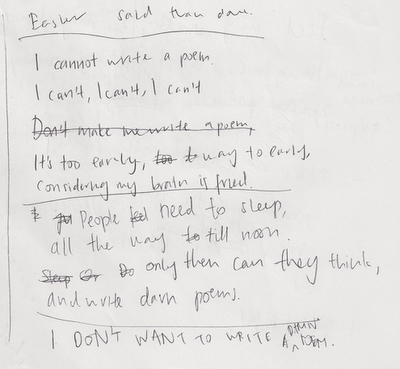 Easier said than done.
I cannot write a poem.
I can't, I can't, I can't
Don't make me write a poem,
It's too early, too to way to early,
considering my brain is fried.
* People need to sleep,
all the way to till noon.
Sleep Or Do only then can they think,
and write damn poems.
I DON'T WANT TO WRITE A DAMN POEM.